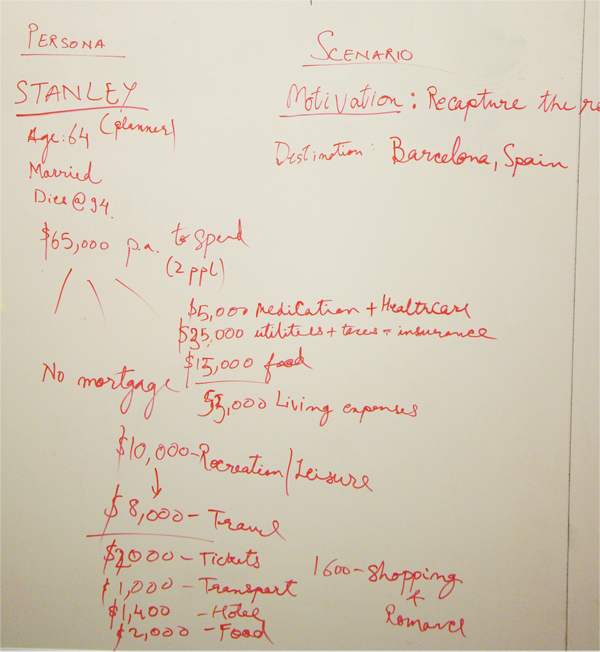 PERSONA
STANLEY
(planner)
Age: 64
Married
Dies @ 94.
$65,000 p.a. to spend
(2 ppl)
$5,000 Medication + Healthcare
$35,000 utilities + taxes + insurance
$15,000 food
No mortgage
55,000 Living expenses
$10,000 - Recreation/Leisure
$8,000 - Travel
$2000 - Tickets
$1,000 - Transport
$1,400 - Hotel
$2,000 - Food
1600 - Shopping
+
Romance
SCENARIO
Motivation: Recapture the
Destination: Barcelona, Spain